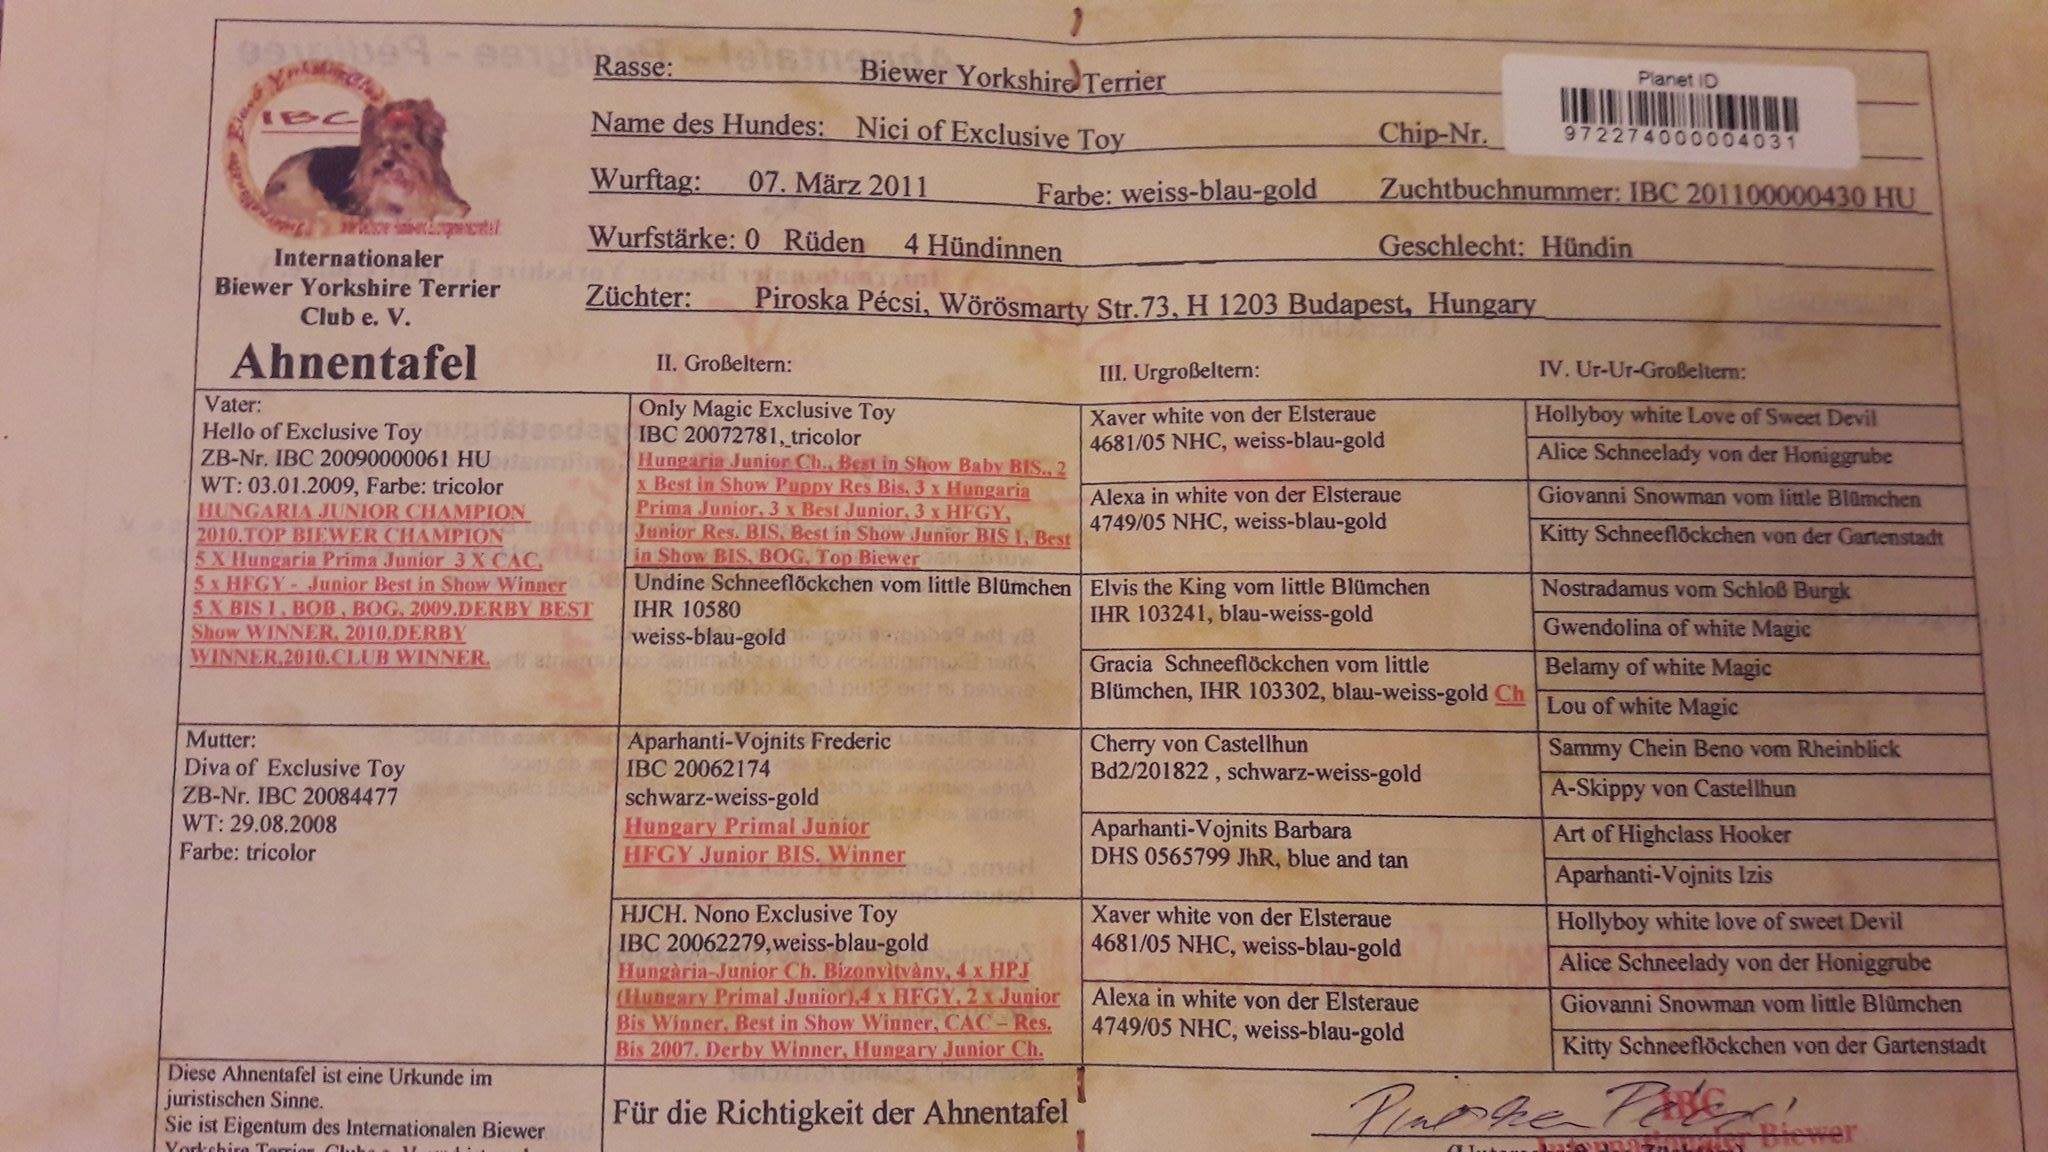 IBC
Internationaler
Biewer Yorkshire Terrier
Club e. V.
Rasse: Biewer Yorkshire Terrier
Planet ID
972274000004031
Name des Hundes: Nici of Exclusive Toy Chip-Nr.
Wurftag: 07. März 2011 Farbe: weiss-blau-gold Zuchtbuchnummer: IBC 201100000430 HU
Wurfstärke: 0 Rüden 4 Hündinnen Geschlecht: Hündin
Züchter: Piroska Pécsi, Wörösmarty Str.73, H 1203 Budapest, Hungary
Ahnentafel II. Großeltern: III. Urgroßeltern: IV. Ur-Ur-Großeltern:
Vater:
Hello of Exclusive Toy
ZB-Nr. IBC 20090000061 HU
WT: 03.01.2009, Farbe: tricolor
HUNGARIA JUNIOR CHAMPION
2010.TOP BIEWER CHAMPION
5 X Hungaria Prima Junior 3 X CAC,
5 x HFGY - Junior Best in Show Winner
5 X BIS 1, BOB , BOG, 2009.DERBY BEST
Show WINNER, 2010.DERBY
WINNER,2010.CLUB WINNER.
Mutter:
Diva of Exclusive Toy
ZB-Nr. IBC 20084477
WT: 29.08.2008
Farbe: tricolor
Only Magic Exclusive Toy
IBC 20072781, tricolor
Hungaria Junior Ch., Best in Show Baby BIS., 2
x Best in Show Puppy Res Bis, 3 x Hungaria
Prima Junior, 3 x Best Junior, 3 x HFGY,
Junior Res. BIS, Best in Show Junior BIS 1, Best
in Show BIS, BOG, Top Biewer
Undine Schneeflöckchen vom little Blümchen
IHR 10580
weiss-blau-gold
Aparhanti-Vojnits Frederic
IBC 20062174
schwarz-weiss-gold
Hungary Primal Junior
HFGY Junior BIS. Winner
HJCH. Nono Exclusive Toy
IBC 20062279,weiss-blau-gold
Hungària-Junior Ch. Bizonyìtvàny, 4 x HPJ
(Hungary Primal Junior),4 x HFGY, 2 x Junior
Bis Winner, Best in Show Winner, CAC – Res,
Bis 2007. Derby Winner, Hungary Junior Ch.
Xaver white von der Elsteraue
4681/05 NHC, weiss-blau-gold
Alexa in white von der Elsteraue
4749/05 NHC, weiss-blau-gold
Elvis the King vom little Blümchen
IHR 103241, blau-weiss-gold
Gracia Schneeflöckchen vom little
Blümchen, IHR 103302, blau-weiss-gold Ch
Cherry von Castellhun
Bd2/201822 , schwarz-weiss-gold
Aparhanti-Vojnits Barbara
DHS 0565799 JhR, blue and tan
Xaver white von der Elsteraue
4681/05 NHC, weiss-blau-gold
Alexa in white von der Elsteraue
4749/05 NHC, weiss-blau-gold
Hollyboy white Love of Sweet Devil
Alice Schneelady von der Honiggrube
Giovanni Snowman vom little Blümchen
Kitty Schneeflöckchen von der Gartenstadt
Nostradamus vom Schloß Burgk
Gwendolina of white Magic
Belamy of white Magic
Lou of white Magic
Sammy Chein Beno vom Rheinblick
A-Skippy von Castellhun
Art of Highclass Hooker
Aparhanti-Vojnits Izis
Hollyboy white love of sweet Devil
Alice Schneelady von der Honiggrube
Giovanni Snowman vom little Blümchen
Kitty Schneeflöckchen von der Gartenstadt
Diese Ahnentafel ist eine Urkunde im
juristischen Sinne.
Sie ist Eigentum des Internationalen Biewer
Yorkshire Terrier
Für die Richtigkeit der Ahnentafel
IBC
Internationaler Biewer
(Unterschrift des Züchters)